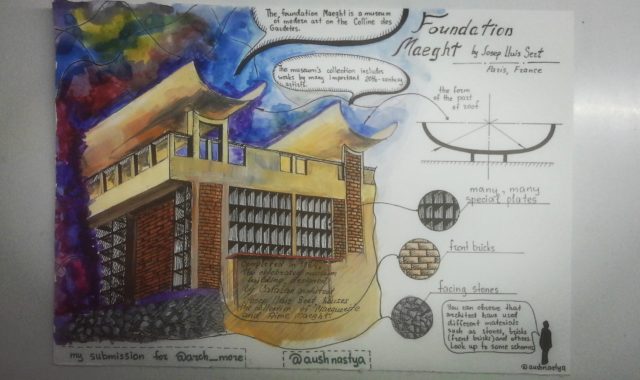 The foundation Maeght is a museum
of modern art on the Colline des
Gaudetes.
Foundation
Maeght by Josep Lluis Sert
Paris, France
The museum's collection includes
works by many important 20th-century
artists.
the form
of the part
of roof
many, many
special plates
front bricks
facing stones
Completed in
The celebrated museum
building designed
by Catalan architect
Josep Lluis Sert houses
the collection of Marguerite
and Aime Maeght.
You can observe that
architect have used
different materials
such as stones, bricks
(front bricks) and others.
Look up to some schemes
my submission for @arch_more
@aushnastya
@aushnastya